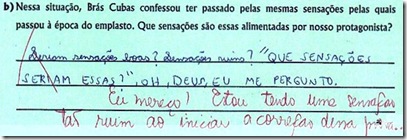 b) Nessa situação, Brás Cubas confessou ter passado pelas mesmas sensações pelas quais
passou à época do emplasto. Que sensações são essas alimentadas por nosso protagonista?
Seriam sensações boas? Sensações ruins? "QUE SENSAÇÕES
SERIAM ESSAS?", OH, DEUS, EU ME PERGUNTO.
Eu mereço! Estou tendo uma sensação
tão ruim ao iniciar a correção dessa